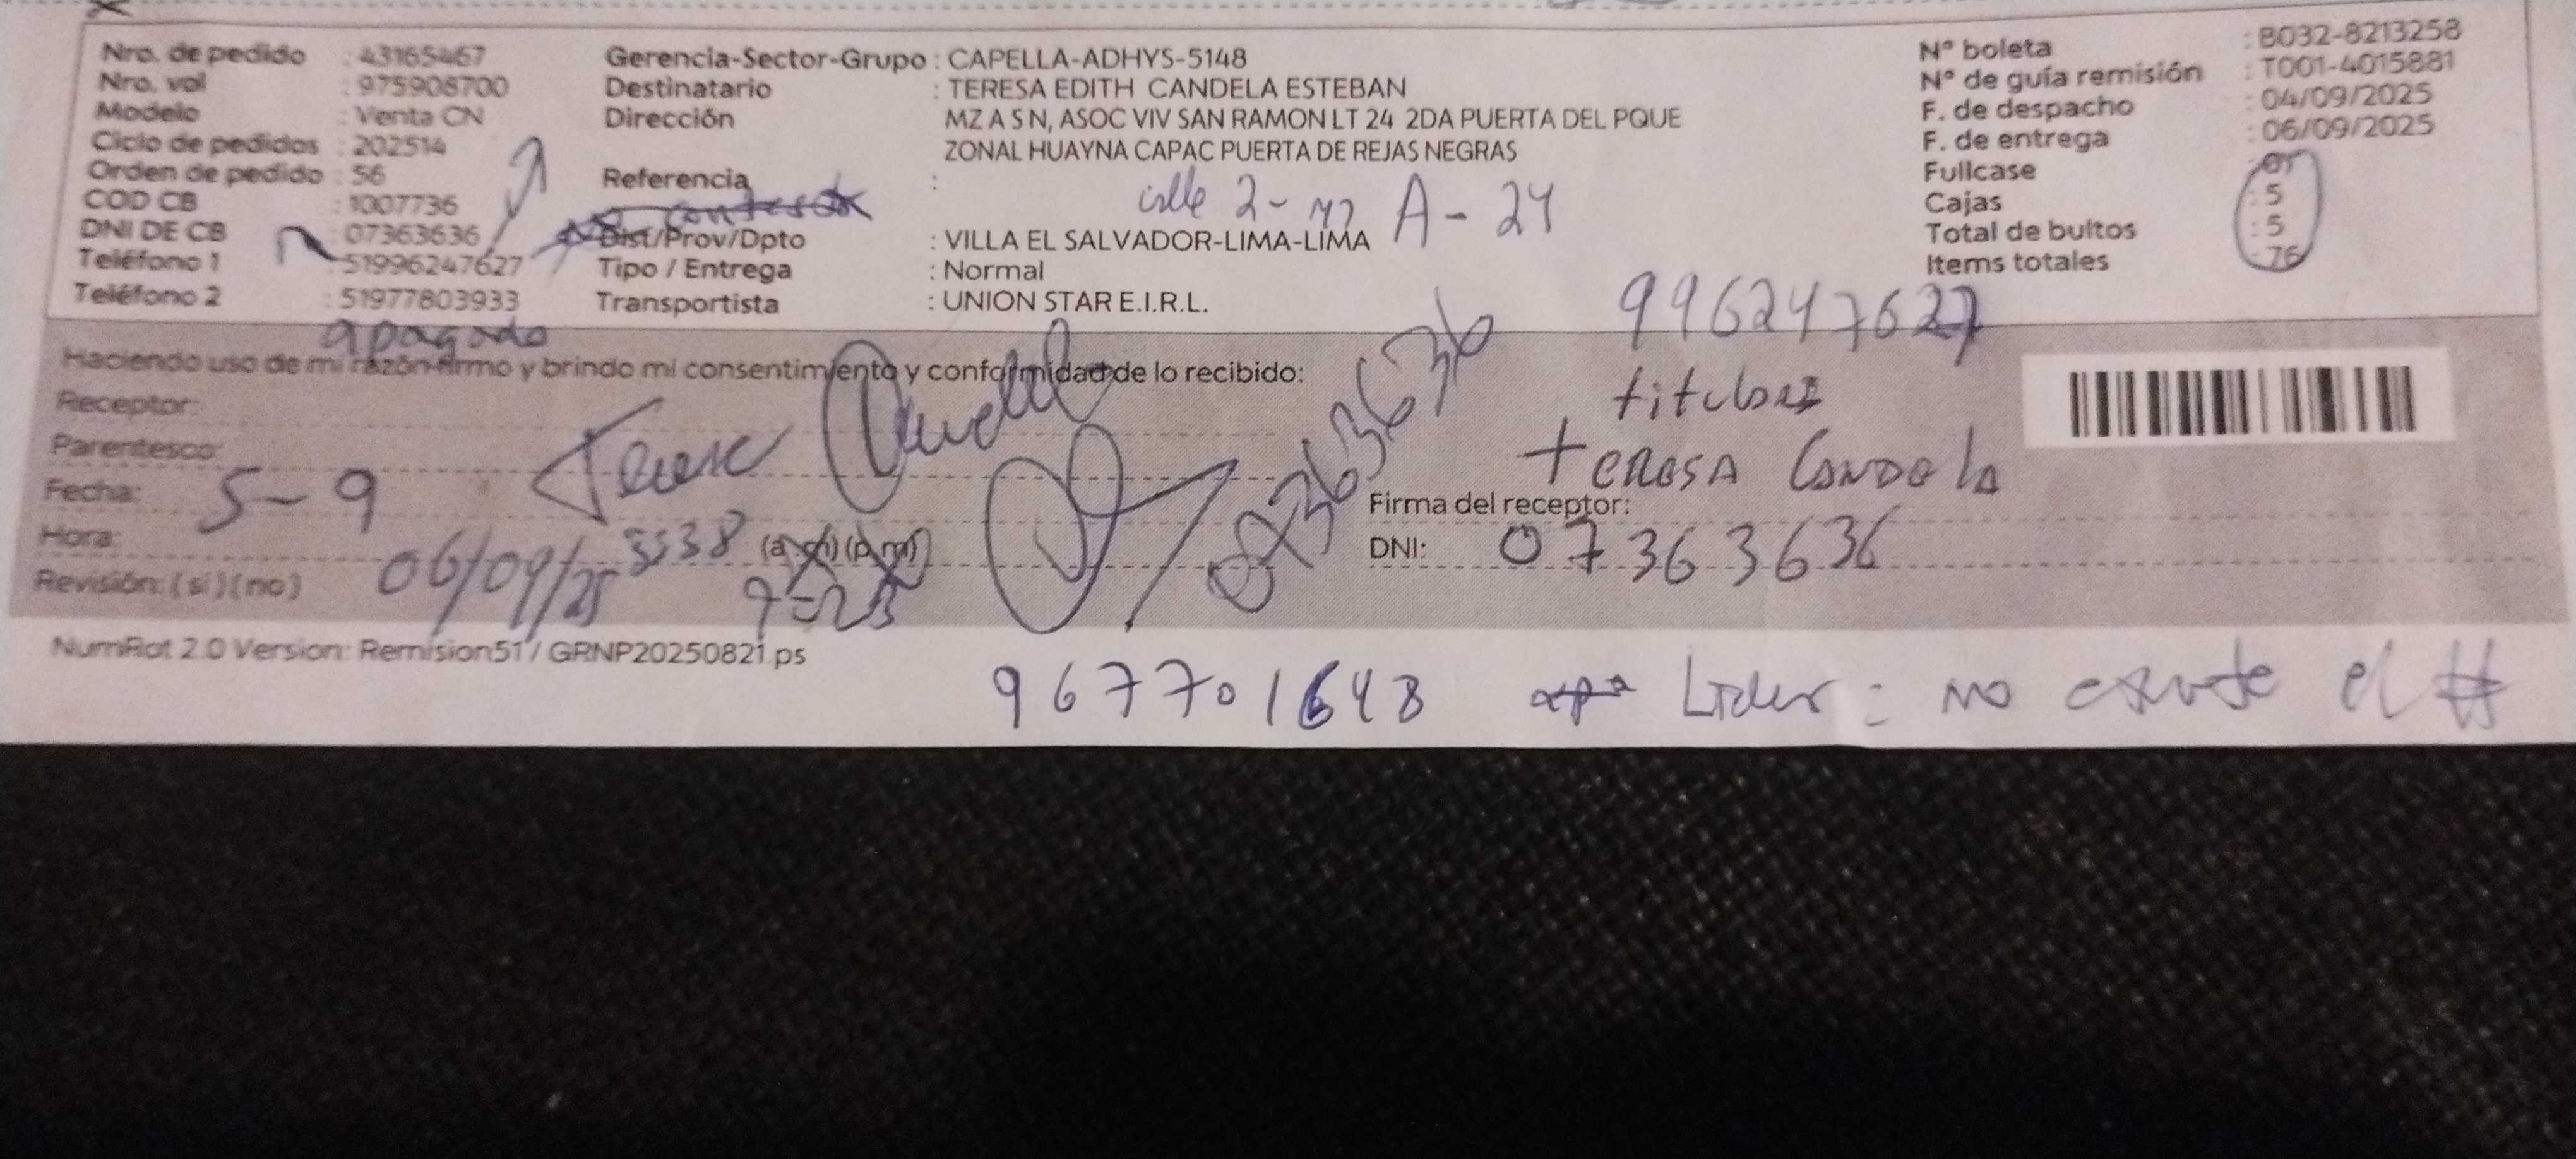 Nro. de pedido : 43165467
Nro. vol : 975908700
Modelo : Venta CN
Ciclo de pedidos : 202514
Orden de pedido : 56
COD CB : 1007736
DNI DE CB : 07363636
Teléfono 1 : 51996247627
Teléfono 2 : 51977803933
apagado
Gerencia-Sector-Grupo : CAPELLA-ADHYS-5148
Destinatario : TERESA EDITH CANDELA ESTEBAN
Dirección MZ A S N, ASOC VIV SAN RAMON LT 24 2DA PUERTA DEL PQUE
ZONAL HUAYNA CAPAC PUERTA DE REJAS NEGRAS
Referencia :
calle 2- MZ A - 24
Dist/Prov/Dpto : VILLA EL SALVADOR-LIMA-LIMA
Tipo / Entrega : Normal
Transportista : UNION STAR E.I.R.L.
N° boleta : B032-8213258
N° de guía remisión : T001-4015881
F. de despacho : 04/09/2025
F. de entrega : 06/09/2025
Fullcase
Cajas : 5
Total de bultos : 5
Items totales : 76
996247627
Haciendo uso de mi razón firmo y brindo mi consentimiento y conformidad de lo recibido:
Receptor:
Parentesco:
Fecha: 5-9
Hora: (a.m) (p.m)
Revisión: ( si ) ( no )
06/09/25
07363636
TERESA CANDELA
Firma del receptor:
DNI: 07363636
NumRot 2.0 Version: Remision51 / GRNP20250821.ps
967701648 Lider: no existe el #